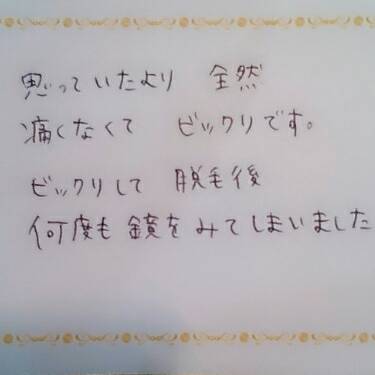 思っていたより 全然
痛くなくて ビックリです。
ビックリして 脱毛後
何度も鏡をみてしまいました